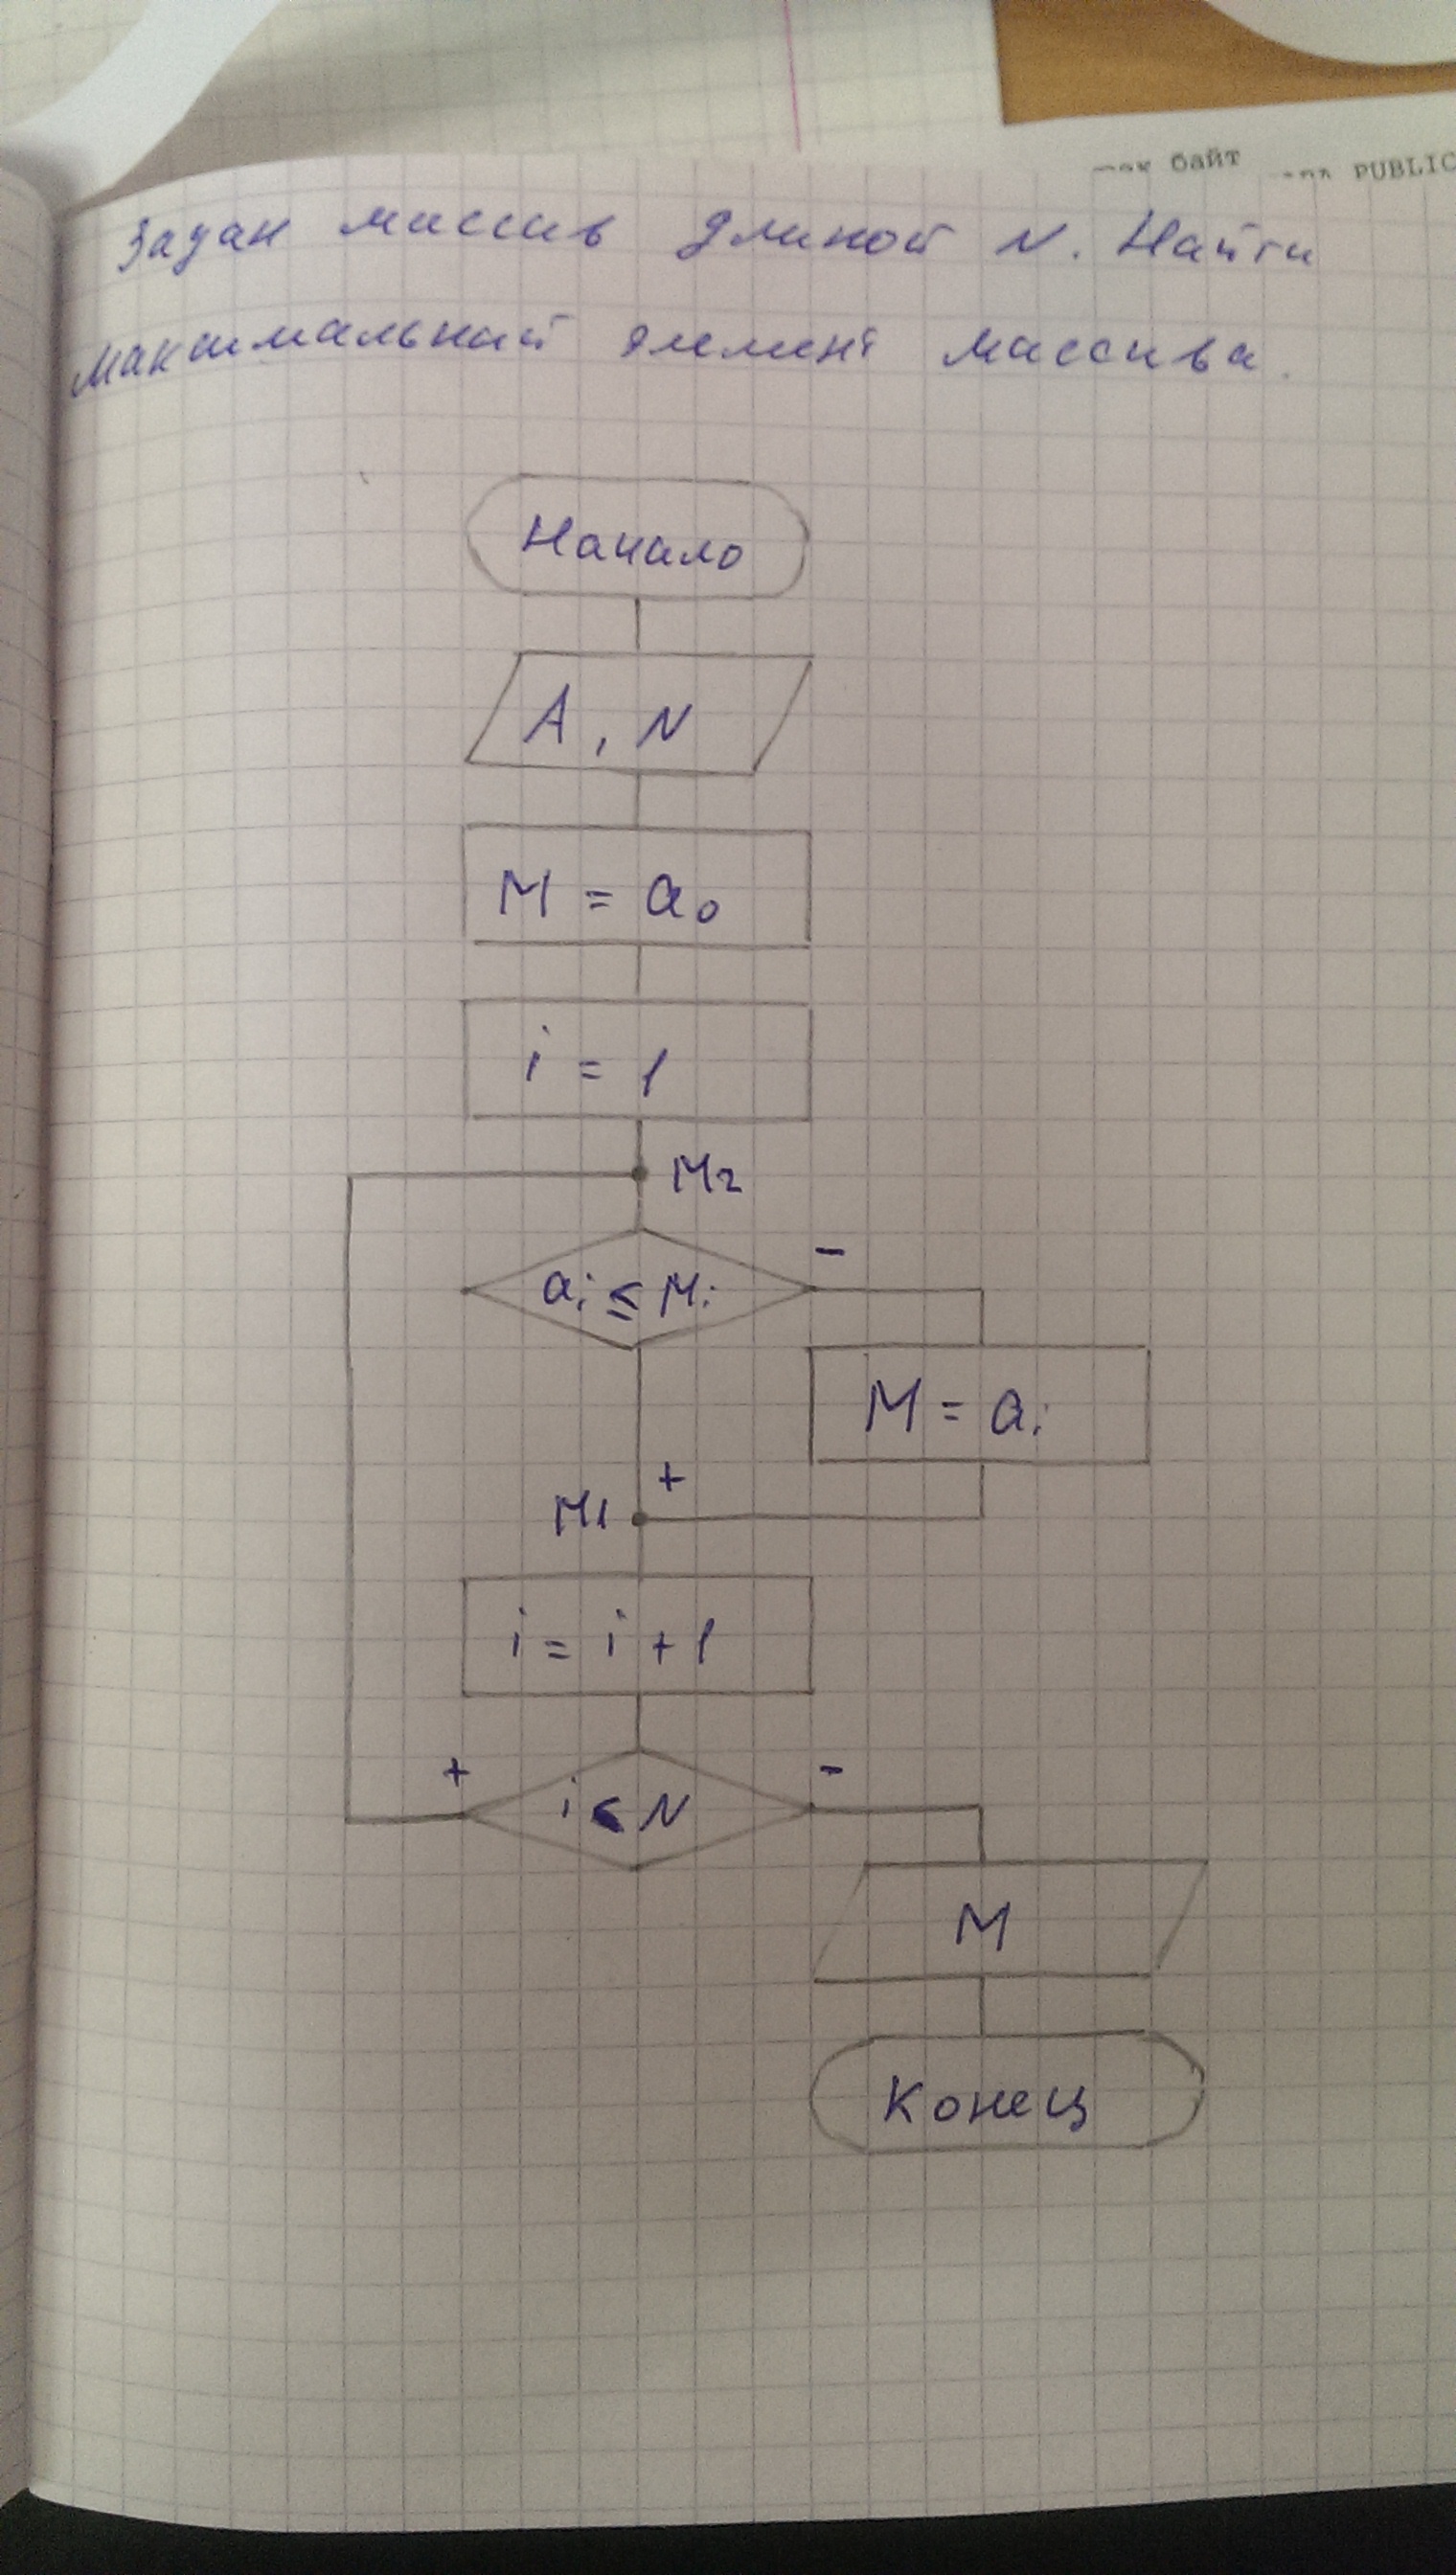 так байт
PUBLIC
Задан массив длиной N. Найти
максимальный элемент массива.
Начало
A, N
M = a₀
i = 1
M2
aᵢ ≤ Mᵢ
-
M = aᵢ
+
M1
i = i + 1
+
i < N
-
M
Конец